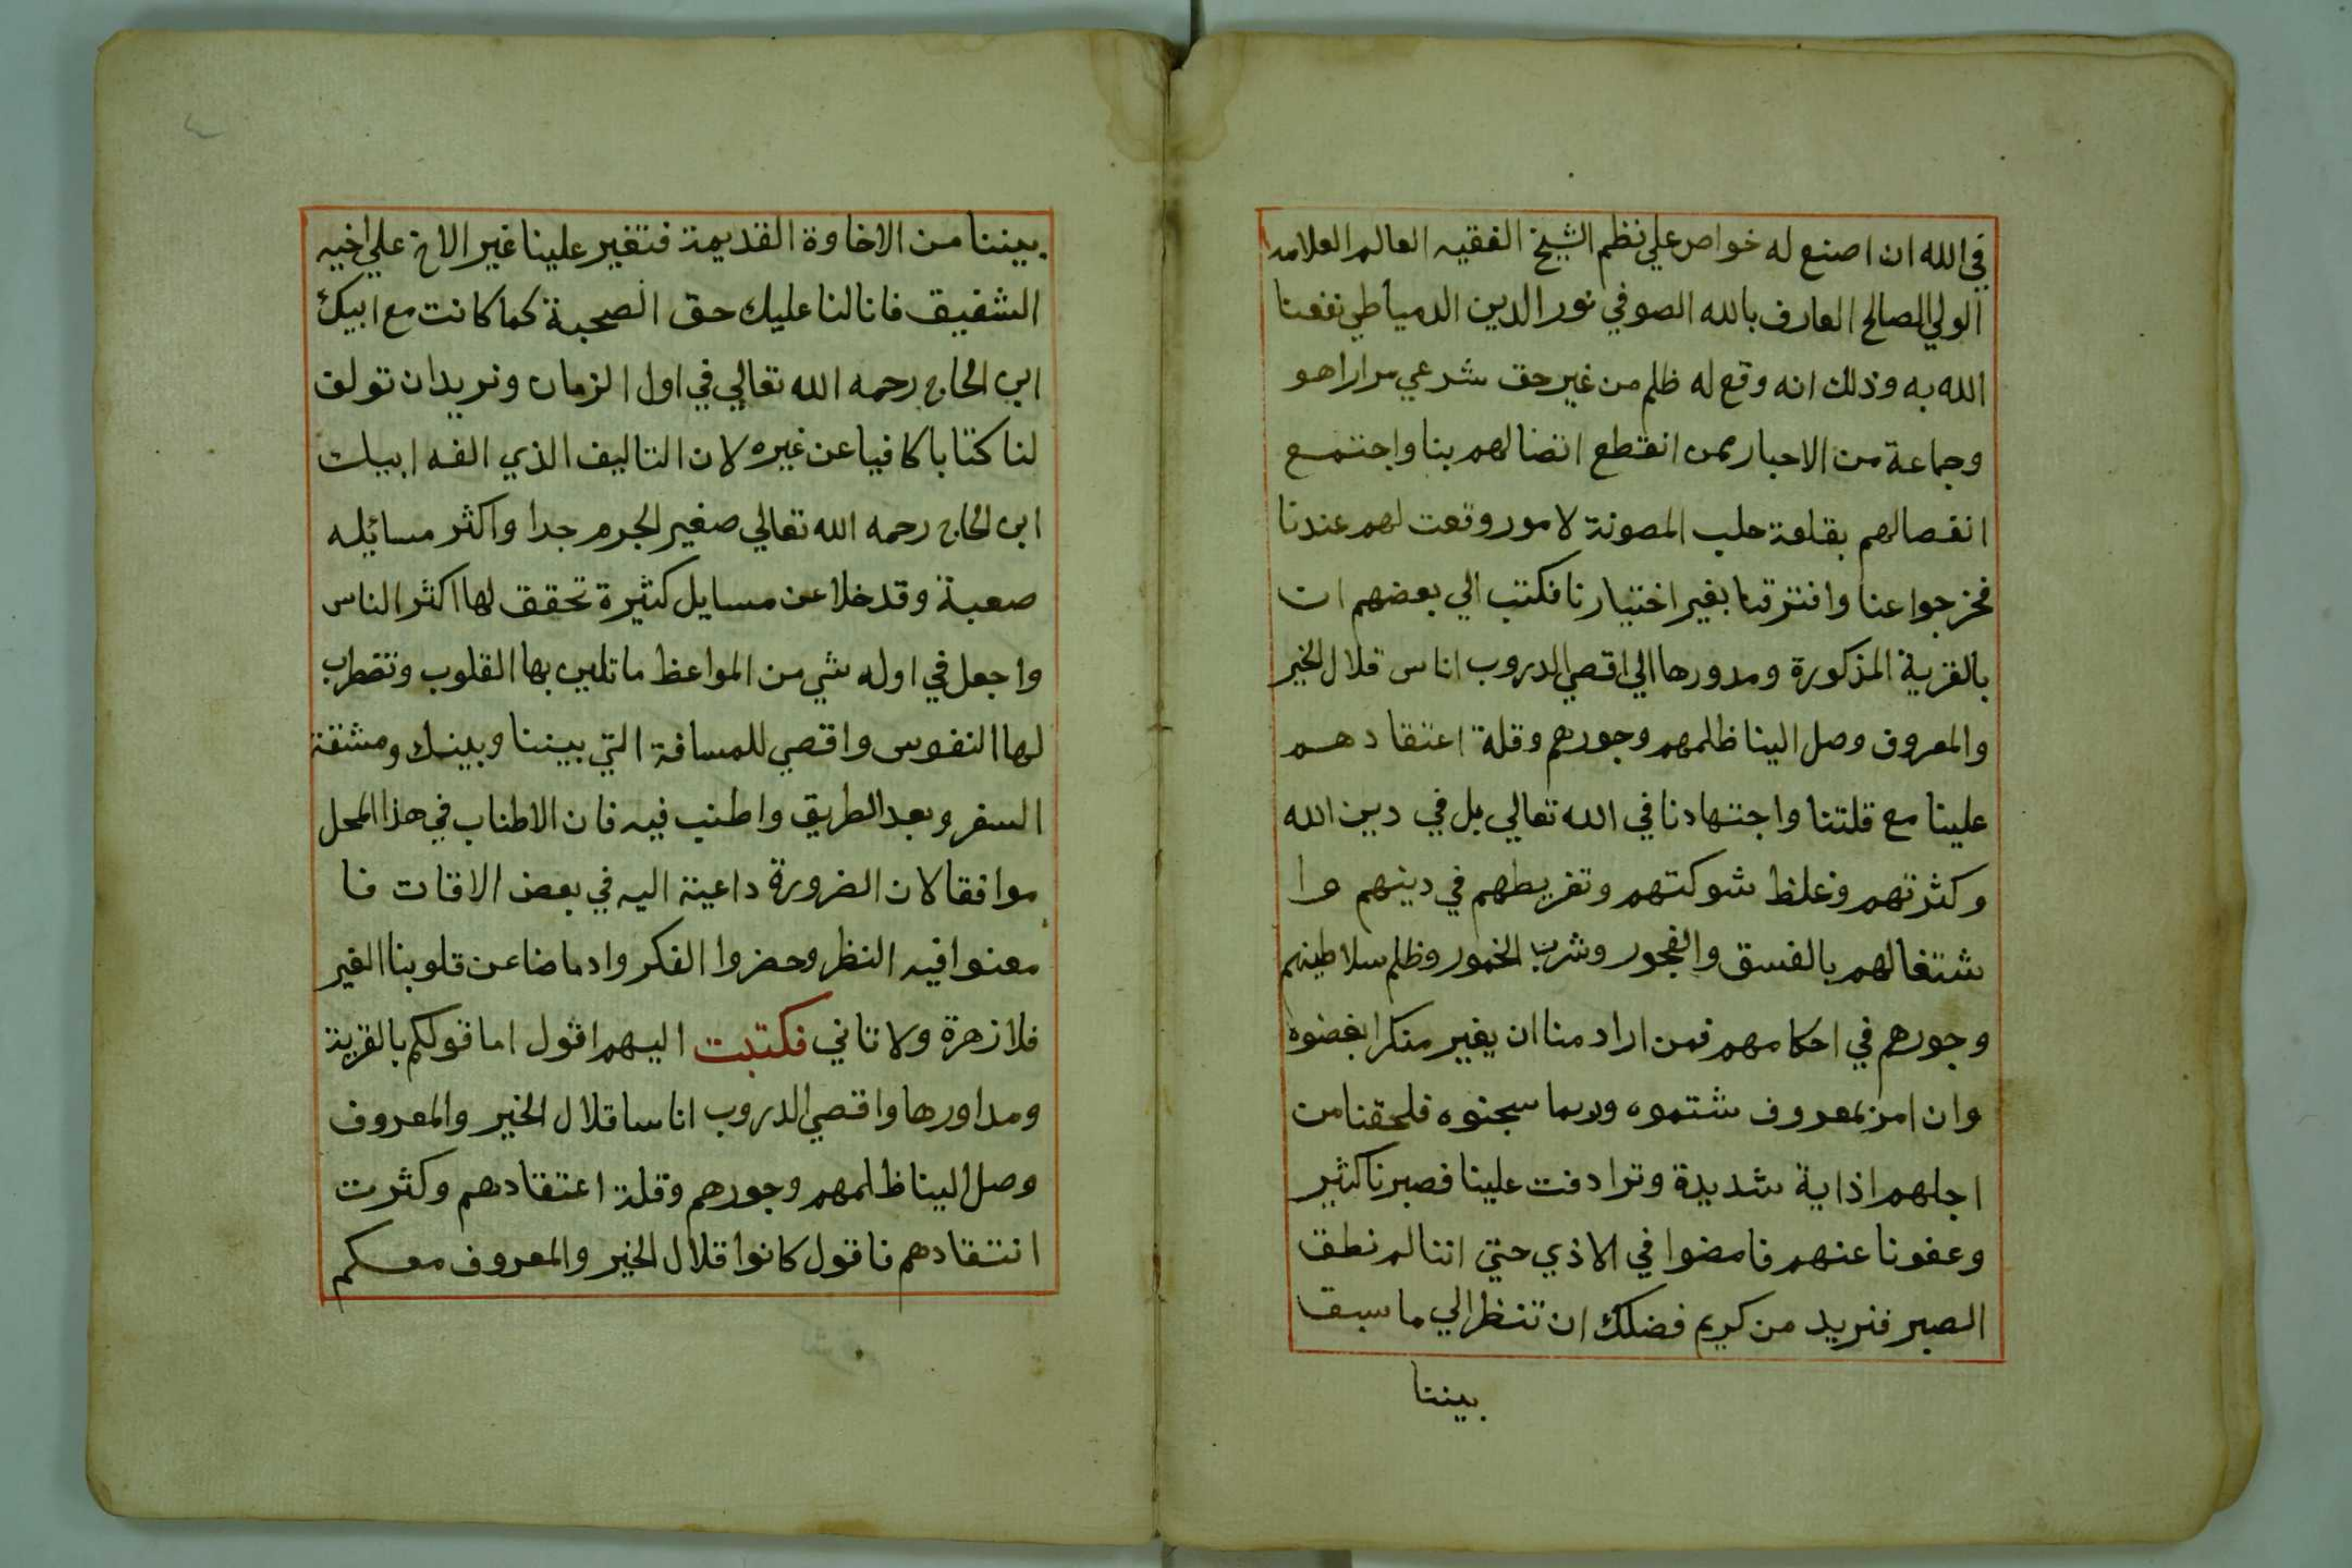 في الله ان اصنع له خواص علي نظم الشيخ الفقيه العالم العلامه
الولي الصالح العارف بالله الصوفي نور الدين الدمياطي نفعنا
الله به وذلك انه وقع له ظلم من غير حق شرعي مرارا هو
وجماعة من الاحبار ممن انقطع اتضالهم بنا واجتمع
انفصالهم بقلعة حلب المصونة لامور وقعت لهم عندنا
فخرجوا عنا وافترقنا بغير اختيارنا فكتب الي بعضهم ان
بالقرية المذكورة ومدورها الي اقصي الدروب اناس قلال الخير
والمعروف وصل الينا ظلمهم وجورهم وقلة اعتقادهم
علينا مع قلتنا واجتهادنا في الله تعالي بل في دين الله
وكثرتهم وغلظ شوكتهم وتفريطهم في دينهم وا
شتغالهم بالفسق والفجور وشرب الخمور وظلم سلاطينهم
وجورهم في احكامهم فمن اراد منا ان يغير منكرا بغضوه
وان امر بمعروف شتموه وربما سجنوه فلحقنا من
اجلهم اذاية شديدة وترادفت علينا فصبرنا كثير
وعفونا عنهم فامضوا في الاذي حتي اننا لم نطق
الصبر فنريد من كريم فضلك ان تنظر الي ما سبق
بيننا
بيننا من الاخاوة القديمة فتغير علينا غير الاخ علي اخيه
الشفيق فانا لنا عليك حق الصحبة كما كانت مع ابيك
ابن الحاج رحمه الله تعالي في اول الزمان ونريد ان تولف
لنا كتابا كافيا عن غيره لان التاليف الذي الفه ابيك
ابن الحاج رحمه الله تعالي صغير الجرم جدا واكثر مسائيله
صعبة وقد خلا عن مسايل كثيرة تحقق لها اكثر الناس
واجعل في اوله شي من المواعظ ما تلين بها القلوب وتقطرب
لها النفوس واقصي للمسافة التي بيننا وبينك ومشقة
السفر وبعد الطريق واطنب فيه فان الاطناب في هذا المحل
موافقا لان الضرورة داعية اليه في بعض الاقات فا
معنوا فيه النظر وحضروا الفكر وادماضا عن قلوبنا الغير
فلا زهرة ولا تاني فكتبت اليهم اقول اما قولكم بالقرية
ومداورها واقصي الدروب اناسا قلال الخير والمعروف
وصل الينا ظلمهم وجورهم وقلة اعتقادهم وكثرت
انتقادهم فاقول كانوا قلال الخير والمعروف معكم